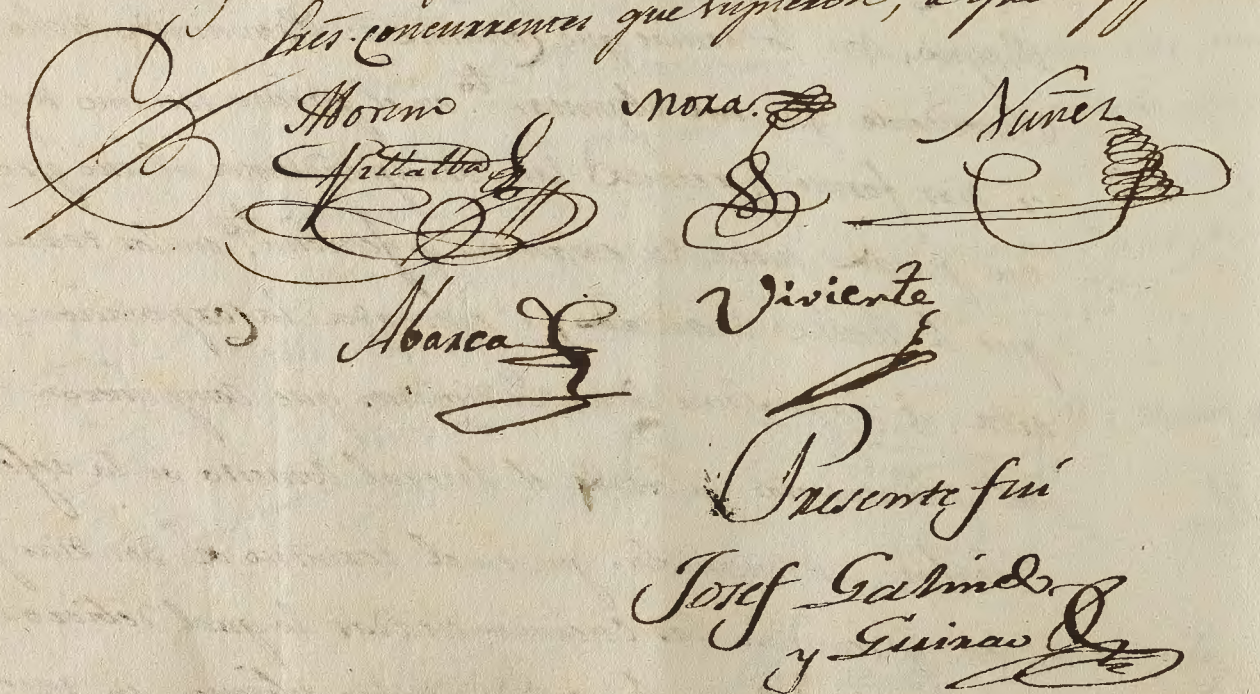 Sres. concurrentes que supieron, a que
Moreno
Villalba
Mora.
Nuñez
Abarca
Viviente
Presente fui
Josef Galindo
y Guirao